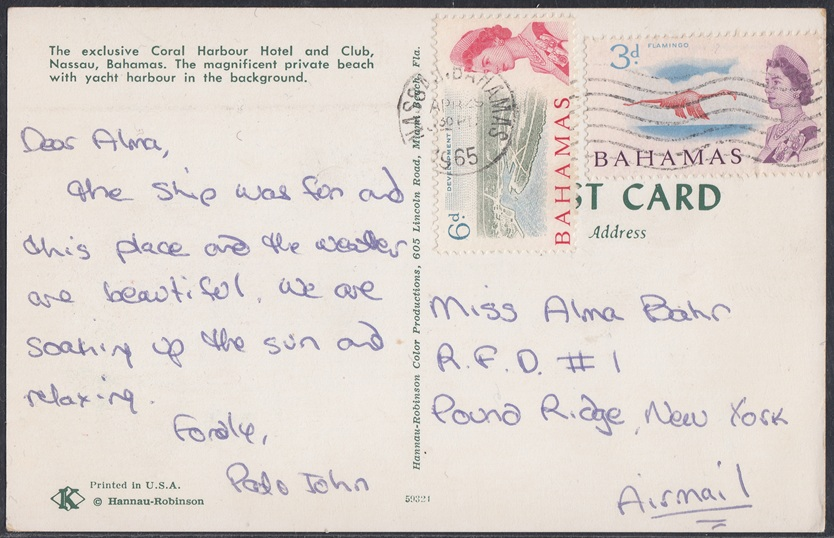 The exclusive Coral Harbour Hotel and Club,
Nassau, Bahamas. The magnificent private beach
with yacht harbour in the background.
Dear Alma,
The ship was fun and
this place and the weather
are beautiful. We are
soaking up the sun and
relaxing.
Fondly,
John
Printed in U.S.A.
K
© Hannau-Robinson
Hannau-Robinson Color Productions, 605 Lincoln Road, Miami Beach, Fla.
59321
NASSAU BAHAMAS
APR
1965
6d
DEVELOPMENT
BAHAMAS
3d
FLAMINGO
BAHAMAS
ST CARD
Address
Miss Alma Bahr
R.F.D. #1
Pound Ridge, New York
Airmail